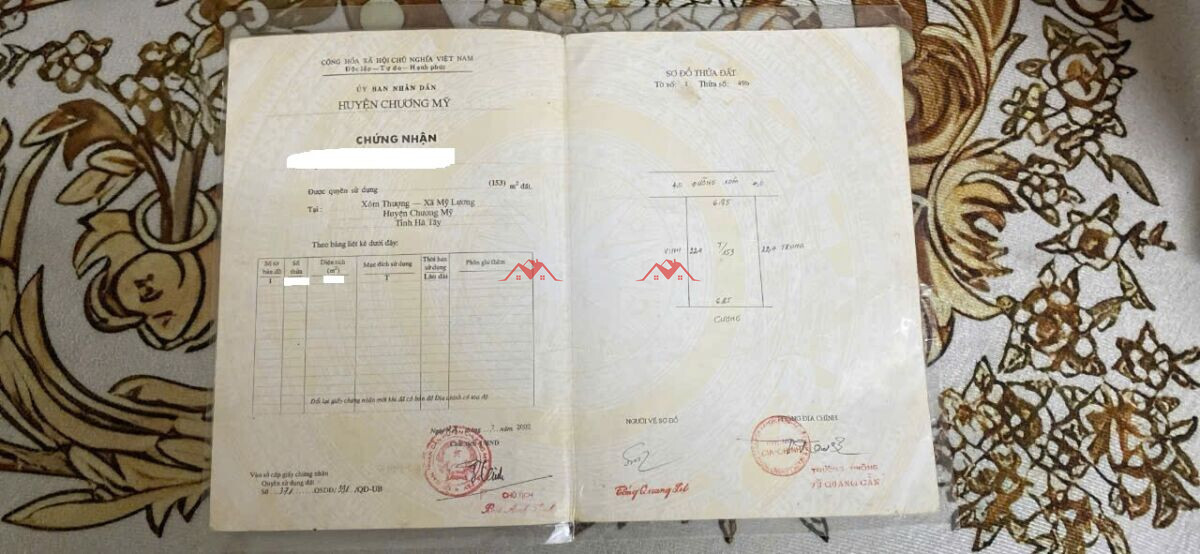 CỘNG HÒA XÃ HỘI CHỦ NGHĨA VIỆT NAM
Độc lập — Tự do — Hạnh phúc
ỦY BAN NHÂN DÂN
HUYỆN CHƯƠNG MỸ
CHỨNG NHẬN
Được quyền sử dụng (153) m² đất.
Tại: Xóm Thượng — Xã Mỹ Lương
Huyện Chương Mỹ
Tỉnh Hà Tây
Theo bảng liệt kê dưới đây:
Số tờ bản đồ Số thửa Diện tích (m²) Mục đích sử dụng Thời hạn sử dụng Phần ghi thêm
1 T Lâu dài
Đổi lại giấy chứng nhận mới khi đã có bản đồ Địa chính có tọa độ
Ngày tháng năm 2002
UBND
CHỦ TỊCH
Vào sổ cấp giấy chứng nhận
Quyền sử dụng đất
Số 371 QSDĐ/ /QĐ-UB
SƠ ĐỒ THỬA ĐẤT
Tờ số: 1 Thửa số:
4.0 ĐƯỜNG XÓM
6.95
22.4 T/153 22.4 TRUNG
6.85
CƯƠNG
NGƯỜI VẼ SƠ ĐỒ
PHÒNG ĐỊA CHÍNH
TRƯỞNG PHÒNG